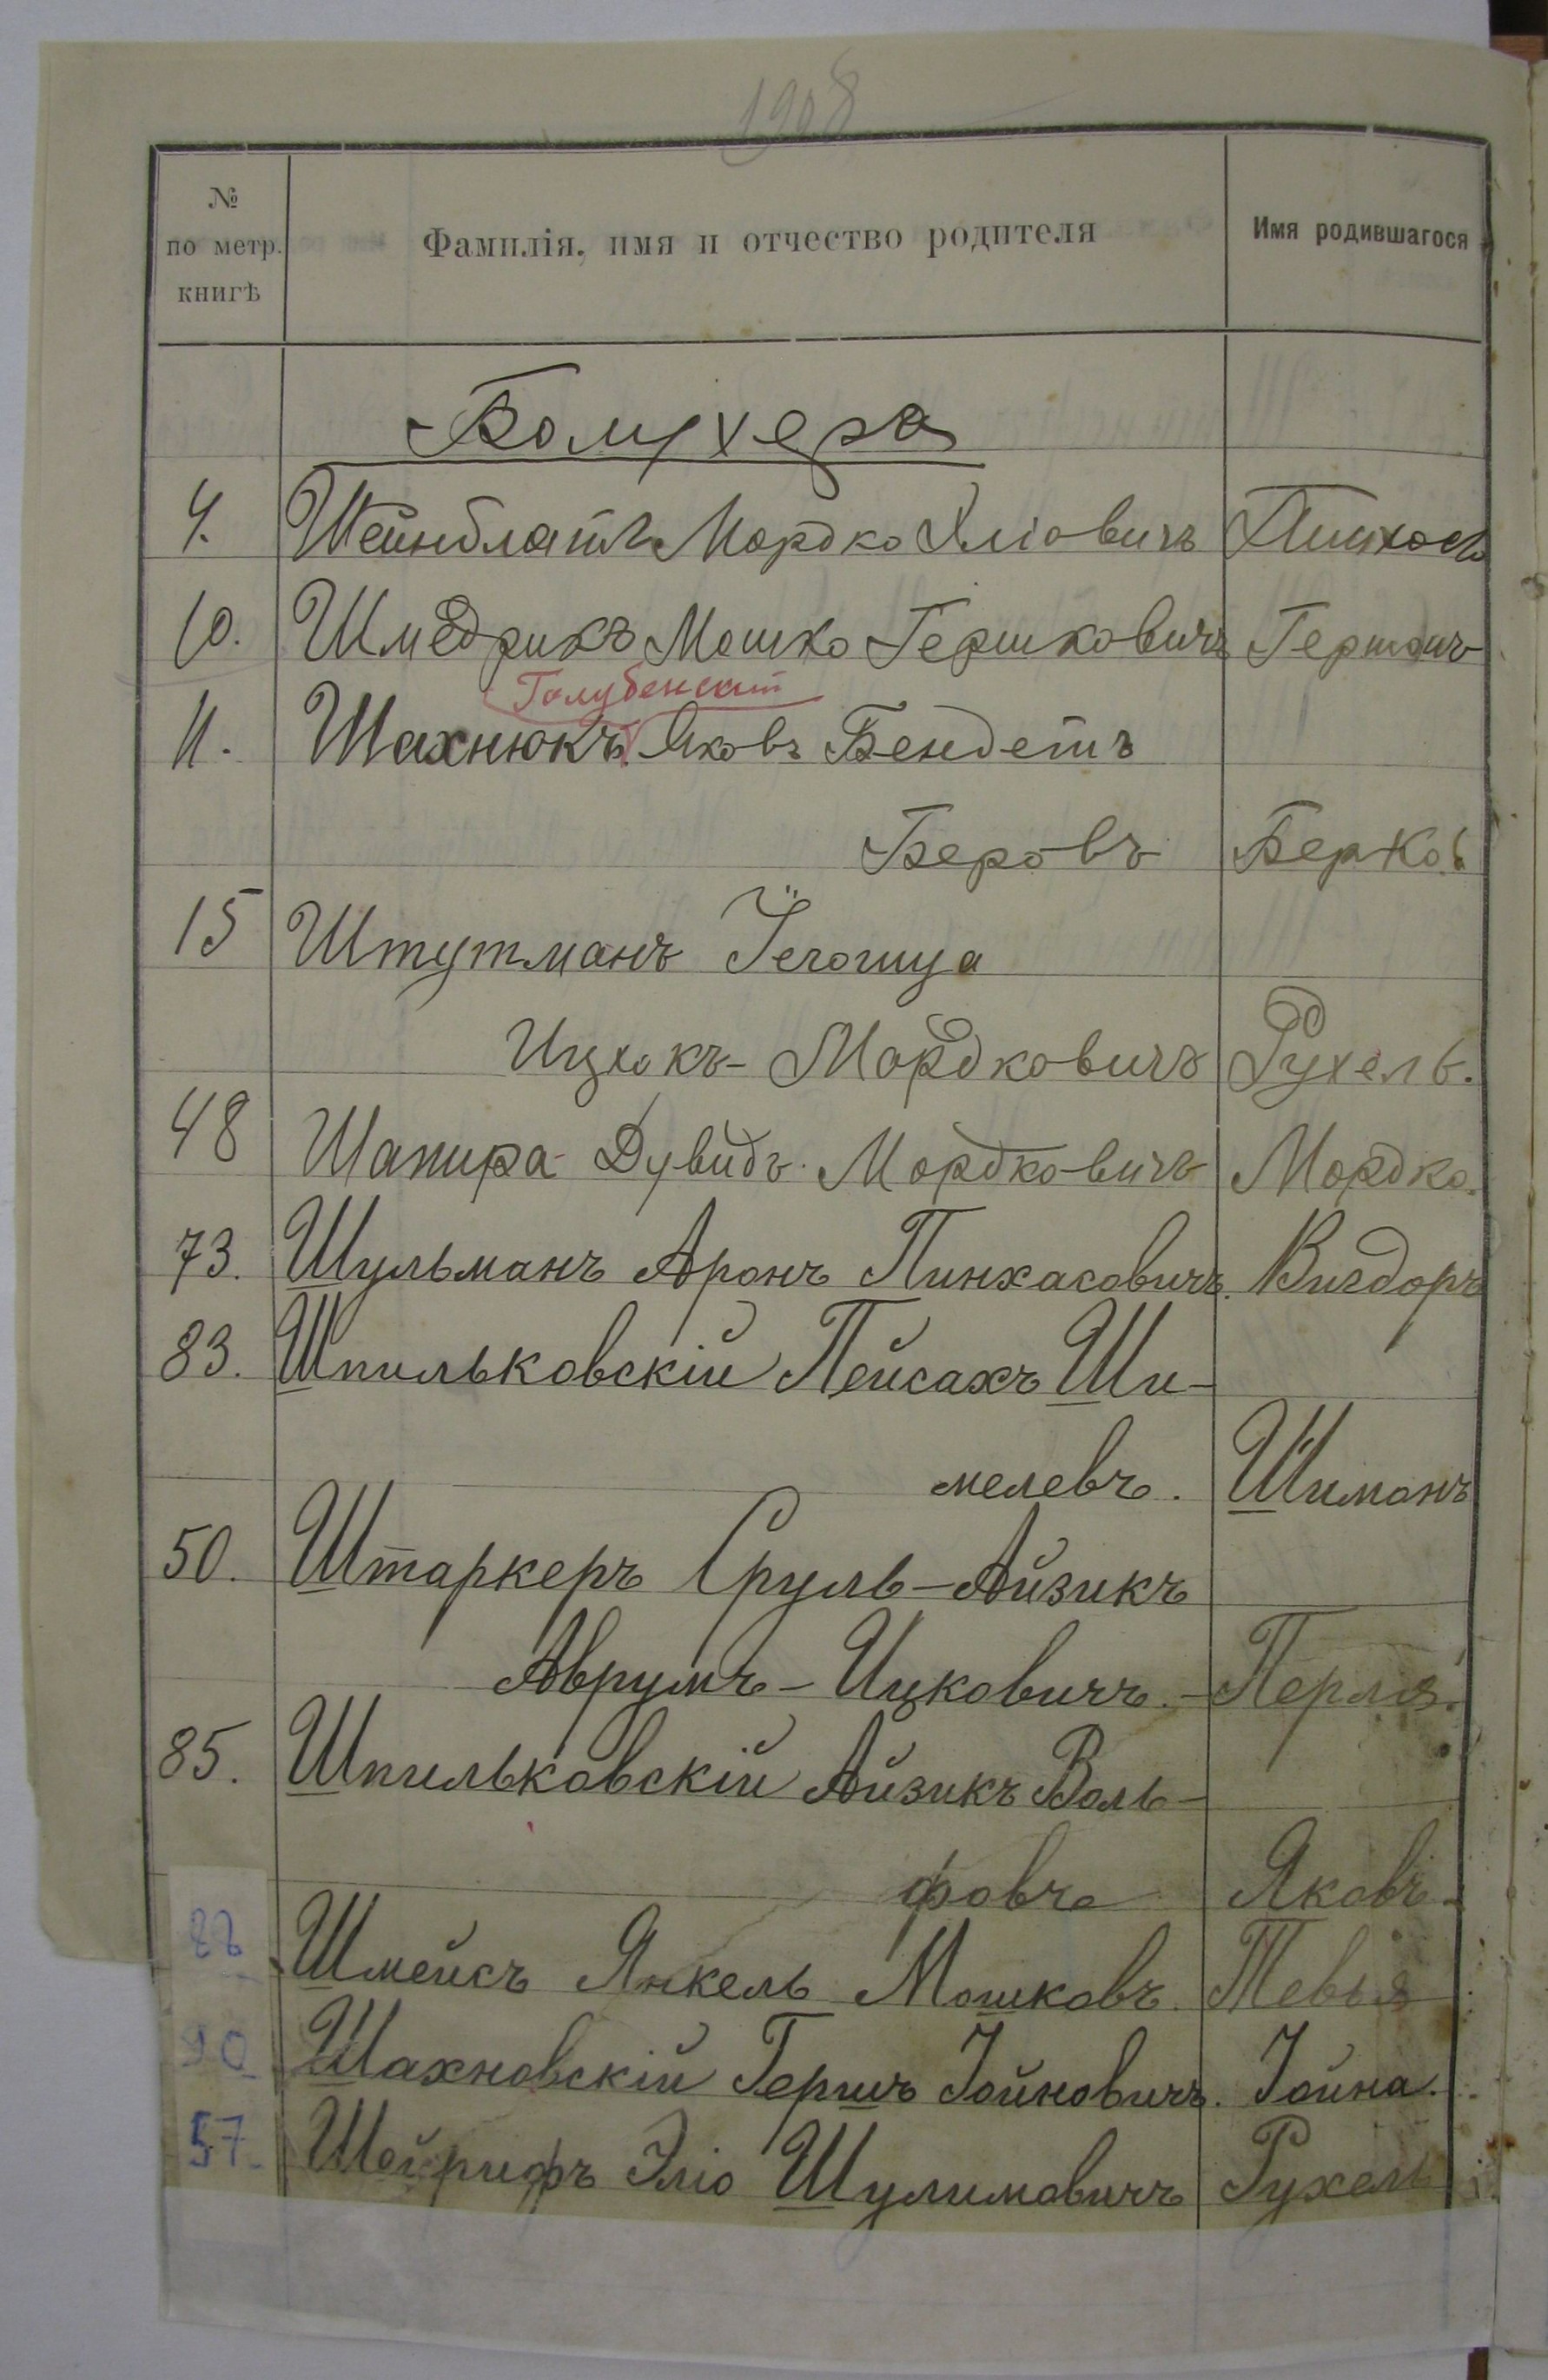 1908
№
по метр.
книгѣ
Фамилія, имя и отчество родителя
Имя родившагося
4. Шейнблатъ Мордко Эліовичъ Пинхосъ
10. Шмедрикъ Мошко Гершковичъ Гершонъ
Голубенскій
11. Шахнюкъ Яковъ Бендетъ
Беровъ Берко
15 Штутманъ Іегошуа
Ицхокъ-Мордковичъ Рухель.
48 Шапира Дувидъ Мордковичъ Мордко.
73. Шульманъ Аронъ Пинхасовичъ. Вигдоръ
83. Шпильковскій Пейсахъ Ши-
мелевъ. Шиманъ
50. Штаркеръ Сруль-Айзикъ
Аврумъ-Ицковичъ. Перля.
85. Шпильковскій Айзикъ Воль-
фовъ Яковъ
88 Шмейсъ Янкель Мошковъ. Тевья
90 Шахновскій Гершъ Іойновичъ. Іойна.
57. Шейрифъ Эліо Шулимовичъ Рухель